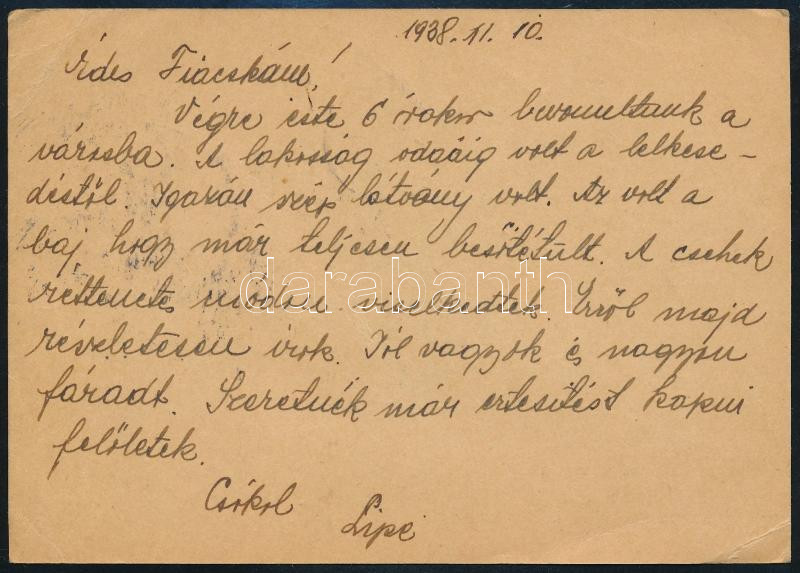 1938. XI. 10.
Édes Fiacskám!
Végre este 6 órakor bevonultunk a
városba. A lakosság odááig volt a lelkese-
déstől. Igazán szép látvány volt. Az volt a
baj hogy már teljesen besötétült. A csehek
darabanth
rettenetes módon viselkedtek. Erről majd
részletesen írok. Jól vagyok és nagyon
fáradt. Szeretnék már értesítést kapni
felőletek.
Csókol
Lipi